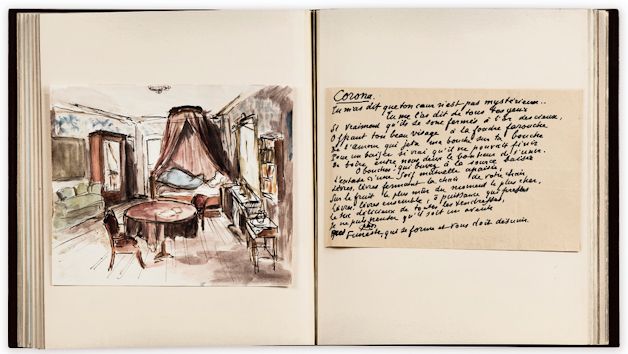 Corona
Tu m'as dit que ton cœur n'est pas mystérieux..
Tu me l'as dit de tous tes yeux
Si vraiment qu'ils se sont fermés à l'or des cieux,
Offrant ton beau visage à la foudre farouche
De l'amour qui jeta ma bouche sur ta bouche
Pour un baiser si vrai qu'il ne pouvait finir
entre nous deux le bonheur de s'unir.
O bouches! qui buvez à la source
L'extase d'une soif mutuelle
Lèvres, lèvres fermant la chair de votre chair
Sur le fruit le plus mûr du moment le plus cher,
Lèvres, lèvres ensemble, ô puissance qui
délicieux de toutes les
Je ne puis penser qu'il soit un avenir
Funeste, qui se forme et vous doit désunir.